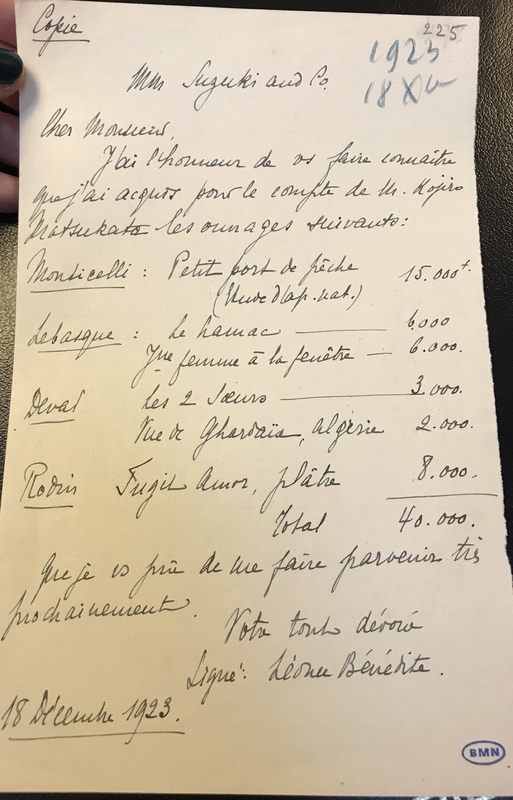 Copie
225
1923
18 XII
Mm Suzuki and Co.
Cher Monsieur,
J'ai l'honneur de vs faire connaître
que j'ai acquis pour le compte de M. Kojiro
Matsukata les ouvrages suivants:
Monticelli : Petit port de pêche 15.000f.
(Vue d'ap. nat.)
Lebasque : Le hamac 6.000
Jne femme à la fenêtre 6.000.
Deval Les 2 Sœurs 3.000.
Vue de Ghardaïa, Algérie 2.000.
Rodin Fugit Amor, plâtre 8.000.
Total 40.000.
que je vs prie de me faire parvenir très
prochainement.
Votre tout dévoué
Signé: Léonce Bénédite.
18 Décembre 1923.
BMN